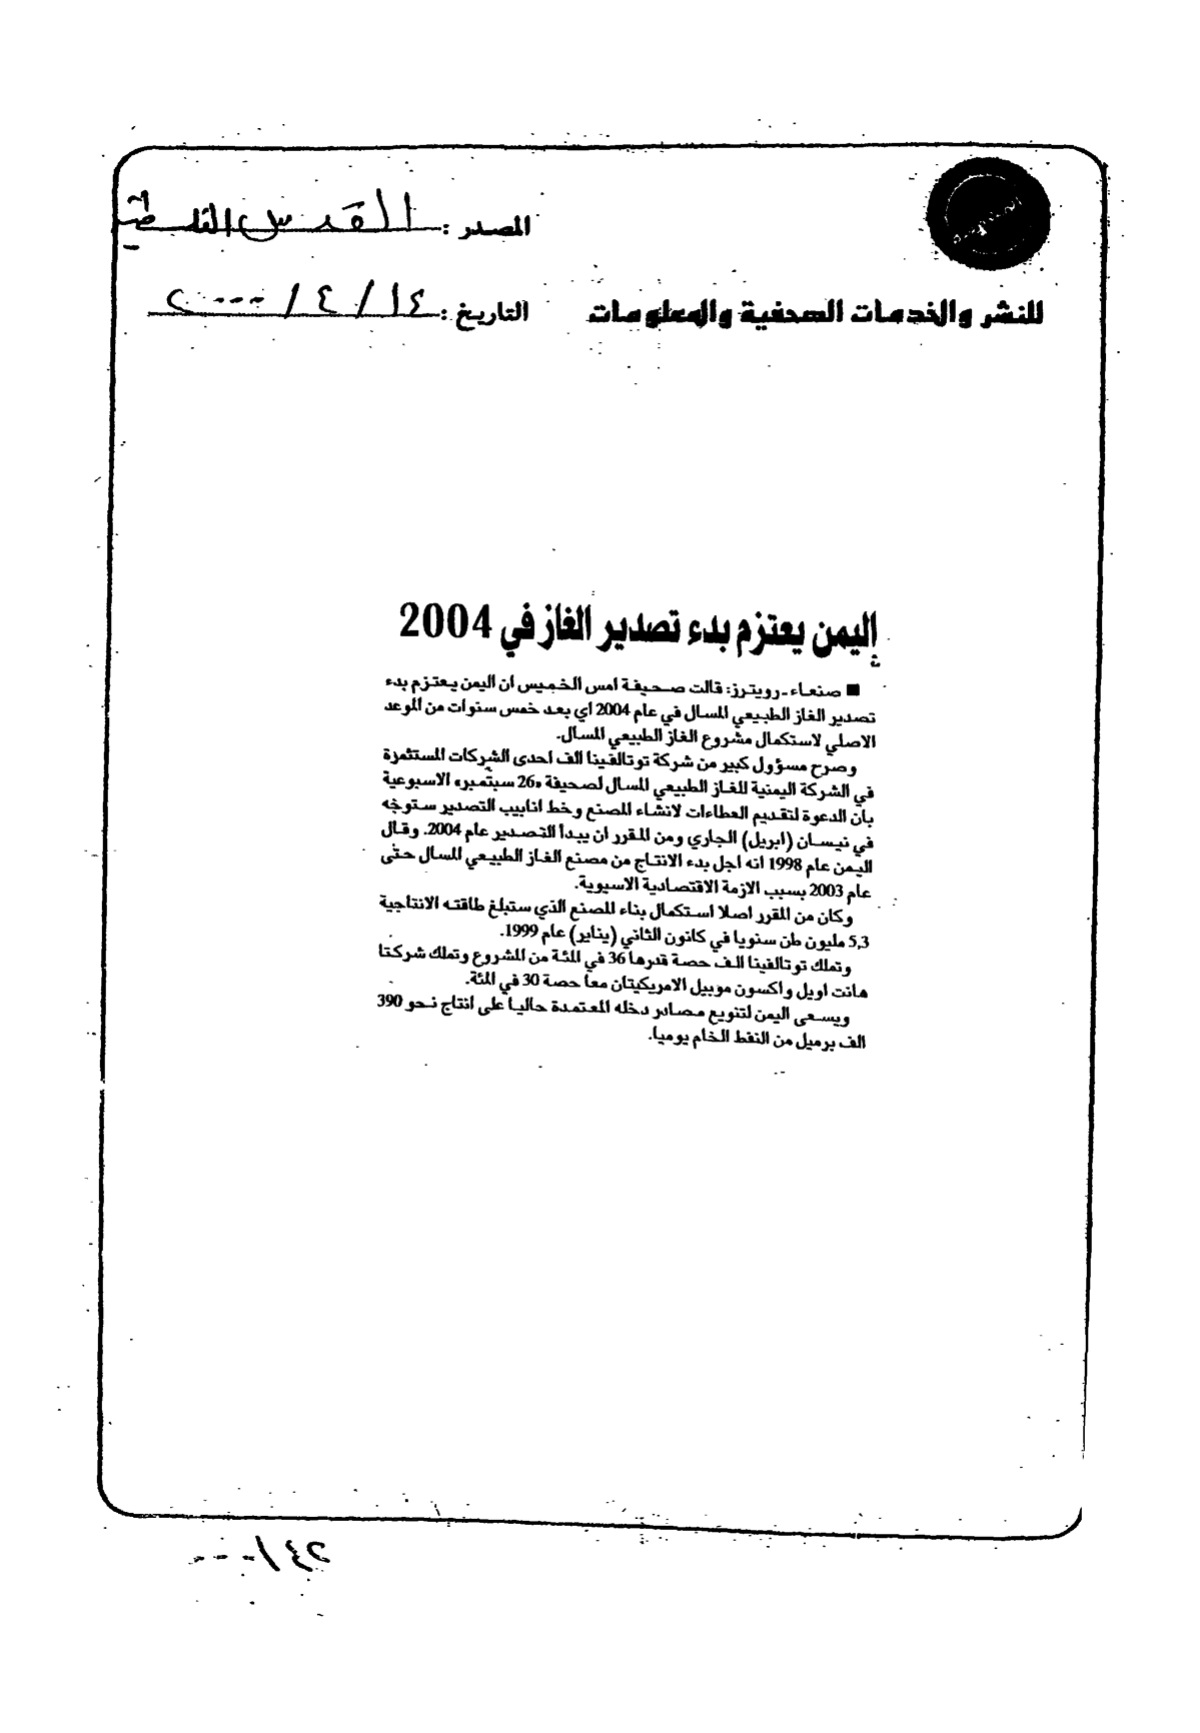 المصدر : القدس الفلسطينية
للنشر والخدمات الصحفية والمعلومات
التاريخ : ١٤ / ٤ / ٢٠٠٠
اليمن يعتزم بدء تصدير الغاز في 2004
■ صنعاء - رويترز: قالت صحيفة امس الخميس ان اليمن يعتزم بدء
تصدير الغاز الطبيعي المسال في عام 2004 اي بعد خمس سنوات من الموعد
الاصلي لاستكمال مشروع الغاز الطبيعي المسال.
وصرح مسؤول كبير من شركة توتالفينا الف احدى الشركات المستثمرة
في الشركة اليمنية للغاز الطبيعي المسال لصحيفة «26 سبتمبر» الاسبوعية
بان الدعوة لتقديم العطاءات لانشاء المصنع وخط انابيب التصدير ستوجه
في نيسان (ابريل) الجاري ومن المقرر ان يبدأ التصدير عام 2004. وقال
اليمن عام 1998 انه اجل بدء الانتاج من مصنع الغاز الطبيعي المسال حتى
عام 2003 بسبب الازمة الاقتصادية الاسيوية.
وكان من المقرر اصلا استكمال بناء المصنع الذي ستبلغ طاقته الانتاجية
5,3 مليون طن سنويا في كانون الثاني (يناير) عام 1999.
وتملك توتالفينا الف حصة قدرها 36 في المئة من المشروع وتملك شركتا
هانت اويل واكسون موبيل الامريكيتان معا حصة 30 في المئة.
ويسعى اليمن لتنويع مصادر دخله المعتمدة حاليا على انتاج نحو 390
الف برميل من النفط الخام يوميا.